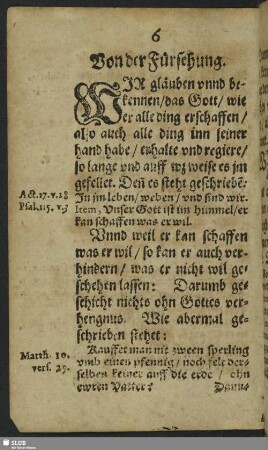 6
Von der Fürsehung.
WIR gläuben vnnd be-
kennen/das Gott/wie
er alle ding erschaffen/
also auch alle ding inn seiner
hand habe/erhalte vnd regiere/
so lange vnd auff wz weise es jm
gefellet. Deñ es steht geschriebē:
Act.17.v.28
In jm leben/weben/vnd sind wir.
Psal.115.v.3
Item, Vnser Gott ist im himmel/er
kan schaffen was er wil.
Vnnd weil er kan schaffen
was er wil/so kan er auch ver-
hindern/was er nicht wil ge-
schehen lassen: Darumb ge-
schicht nichts ohn Gottes ver-
hengnus. Wie abermal ge-
schrieben stehet:
Matth. 10.
Kauffet man nit zween sperling
vers. 29.
vmb einen pfennig/noch felt der-
selben keiner auff die erde/ohn
ewren Vatter?
SLUB